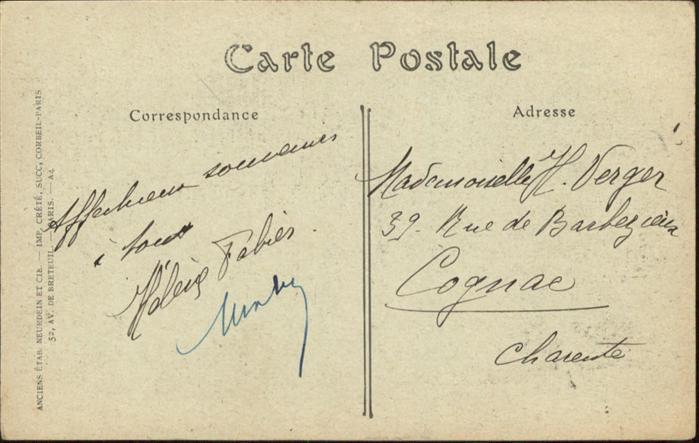 Carte Postale
Correspondance
Adresse
Affectueux souvenirs
à tous
Mademoiselle H. Verger
39. Rue de Barbezieux
Cognac
Charente
ANCIENS ÉTAB. NEURDEIN ET CIE. — IMP. CRÉTÉ, SUCC. CORBEIL-PARIS
52, AV. DE BRETEUIL — PARIS. — A4